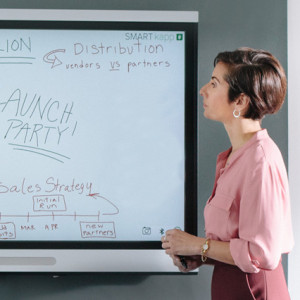 SMART kapp
LION
Distribution
vendors vs partners
AUNCH
PARTY!
Sales Strategy
Initial
Run
MAR APR
New
Partners